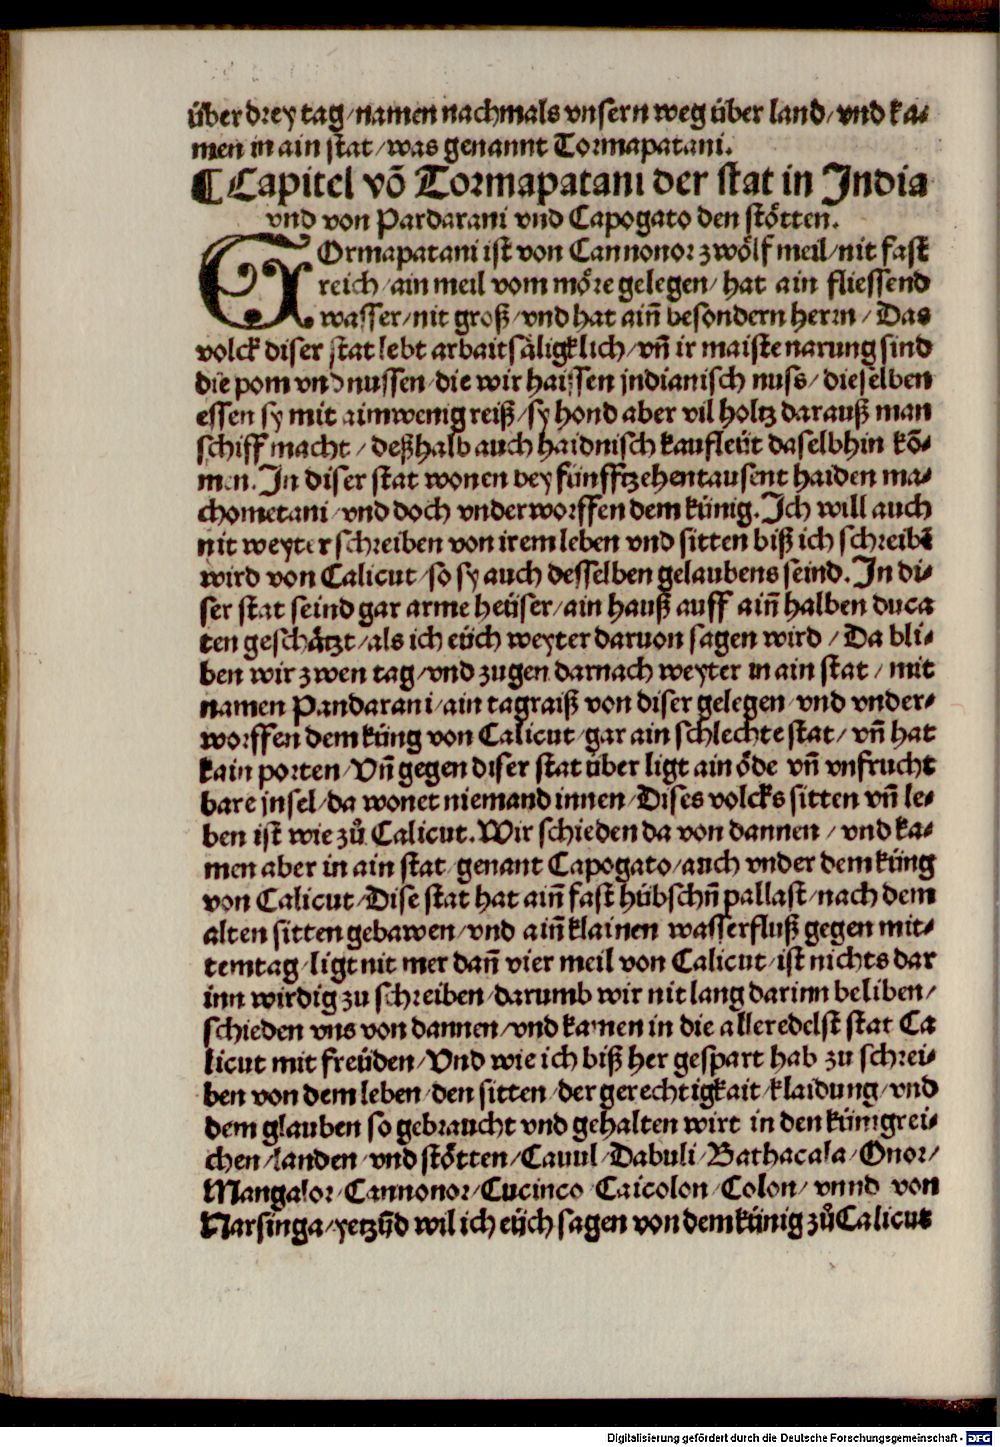 über drey tag/namen nachmals vnsern weg über land/vnd ka-
men in ain stat/was genannt Tormapatani.
¶Capitel võ Tormapatani der stat in India
vnd von Pardarani vnd Capogato den stötten.
TOrmapatani ist von Cannonor zwölf meil/nit fast
reich/ain meil vom möre gelegen/hat ain fliessend
wasser/nit groß/vnd hat aiñ besondern herrn/Das
volck diser stat lebt arbaitsäligklich/vñ ir maiste narung sind
die pom vnd nussen/die wir haissen jndianisch nuss/dieselben
essen sy mit aim wenig reiß/sy hond aber vil holtz darauß man
schiff macht/deßhalb auch haidnisch kaufleüt daselbhin kõ-
men. In diser stat wonen bey fünfftzehentausent haiden ma-
chometani/vnd doch vnderworffen dem künig. Ich will auch
nit weyter schreiben von irem leben vnd sitten biß ich schreibẽ
wird von Calicut/so sy auch desselben gelaubens seind. In di-
ser stat seind gar arme heüser/ain hauß auff aiñ halben duca
ten geschätzt/als ich eüch weyter daruon sagen wird/Da bli-
ben wir zwen tag/vnd zugen darnach weyter in ain stat/mit
namen Pandarani/ain tagraiß von diser gelegen/vnd vnder-
worffen dem küng von Calicut/gar ain schlechte stat/vñ hat
kain porten/Vñ gegen diser stat über ligt ain öde vñ vnfrucht
bare jnsel/da wonet niemand innen/Dises volcks sitten vñ le-
ben ist wie zů Calicut. Wir schieden da von dannen/vnd ka-
men aber in ain stat/genant Capogato/auch vnder dem küng
von Calicut/Dise stat hat aiñ fast hübschñ pallast/nach dem
alten sitten gebawen/vnd aiñ klainen wasserfluß gegen mit-
temtag/ligt nit mer dañ vier meil von Calicut/ist nichts dar
inn wirdig zu schreiben/darumb wir nit lang darinn beliben/
schieden vns von dannen/vnd kamen in die alleredelst stat Ca
licut mit freüden/Vnd wie ich biß her gespart hab zu schrei-
ben von dem leben/den sitten/der gerechtigkait/klaidung/vnd
dem glauben so gebraucht vnd gehalten wirt in den künigrei-
chen/landen/vnd stötten/Cauul/Dabuli/Bathacala/Onor/
Mangalor/Cannonor/Cucinco/Caicolon/Colon/vnnd von
Narsinga/yetzũd wil ich eüch sagen von dem künig zů Calicut
Digitalisierung gefördert durch die Deutsche Forschungsgemeinschaft - DFG